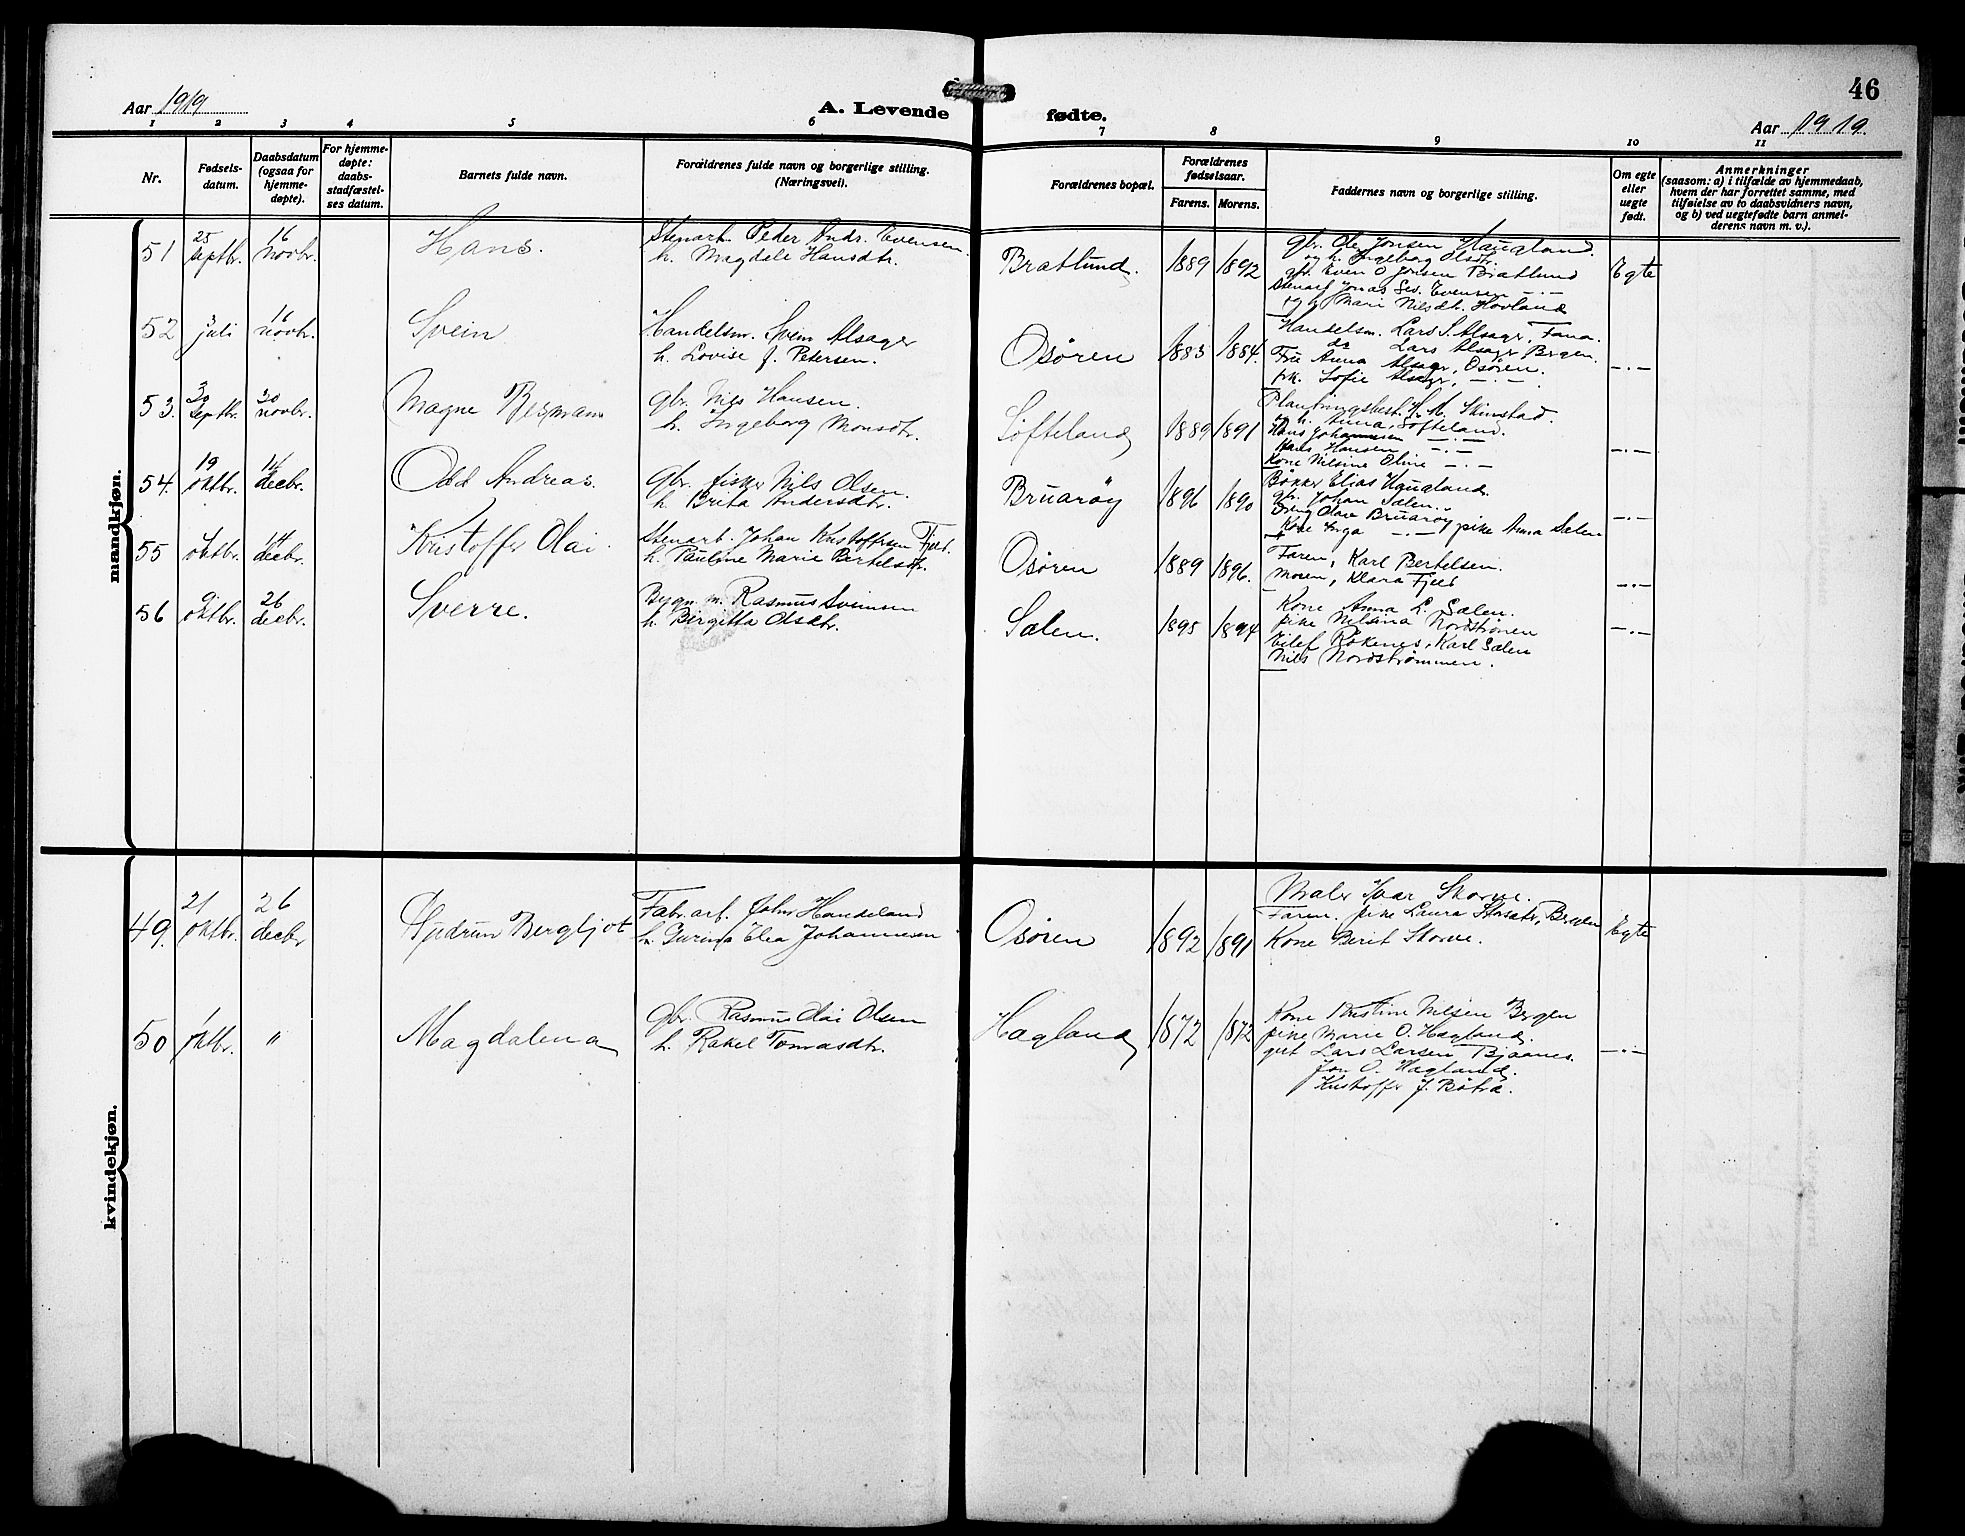 46
Aar 1919
A. Levende fødte.
Aar 1919.
1 2 3 4 5 6 7 8 9 10 11
Nr.
Fødsels-
datum.
Daabsdatum
(ogsaa for
hjemme-
døpte).
For hjemme-
døpte:
daabs-
stadfæstel-
ses datum.
Barnets fulde navn.
Forældrenes fulde navn og borgerlige stilling.
(Næringsvei).
Forældrenes bopæl.
Forældrenes
fødselsaar.
Farens. Morens.
Faddernes navn og borgerlige stilling.
Om egte
eller
uegte
født.
Anmerkninger
(saasom: a) i tilfælde av hjemmedaab,
hvem der har forrettet samme, med
tilføielse av to daabsvidners navn,
og b) ved uegtefødte barn anmel-
derens navn m. v.).
mandkjøn.
51 25 septbr. 16 novbr. Hans.
Stenarb. Peder Andr. Evensen
h. Magdele Hansdtr.
Bratlund. 1889 1892
gbr. Ole Jonsen Haugland
og h. Ingeborg Olsdtr.
gbr. Even O. Jonsen Bratlund
Stenarb Jonas Sev. Evensen —.—
og h. Marie Nilsdtr. Hovland
Egte
52 3 juli 16 novbr. Svein
Handelsm. Svein Alsager
h. Lovise f. Petersen.
Osøren 1883 1884.
Handelsm. Lars S. Alsager, Fana.
do Lars Alsager Bergen.
Frue Anna Alsager, Osøren.
frk. Sofie Alsager, —.—
—.—
53. 30 septbr. 30 novbr. Magne Bergmann
gbr. Nils Hansen.
h. Ingeborg Monsdtr.
Søfteland 1889 1891
Plantningsbest. H. M. Skinstad.
og h. Anna, Søfteland.
Hans Johannesen —.—
Hans Hansen —.—
Kone Nilsine Oline —.—
—.—
54. 19 oktbr. 14 decbr. Odd Andreas.
gbr. fisker Nils Olsen.
h. Brita Andersdtr.
Bruarøy 1896 1890
Bøkker Elias Haugland.
gbr. Johan Sælen.
Olave Bruarøy, pike Anna Sælen
Kone Inga —.—
—.—
55 oktbr. 14 decbr. Kristoffer Olai.
Stenarb. Johan Kristoffersen Fjeld.
h. Pauline Marie Bertelsdtr.
Osøren 1889 1896.
Faren, Karl Bertelsen.
Moren, Klara Fjeld
—.—
56 9 oktbr. 26 decbr. Sverre.
Bygn. m. Rasmus Sveinsen
h. Birgitta Olsdtr.
Sælen. 1895 1894
Kone Anna L. Sælen.
pike Nilsina Nordstrønen
Eilef Røkenes, Karl Sælen
Nils Nordstrømmen.
—.—
kvindekjøn.
49. 21 oktbr. 26 decbr Gudrun Bergljot
Fabr.arb. John Handeland
h. Gurina Elea Johannesen
Osøren 1892 1891
Maler Ivar Skorve.
Faren. pike Laura Storsæter, Bergen
Kone Berit Skorve.
Egte
50 1 oktbr. " Magdalena
gbr. Rasmus Olai Olsen
h. Rakel Tomasdtr.
Hagland 1872 1872
Kone Kristine Nilsen Bergen
pike Marie O. Hagland.
gut Lars Larsen Bjaanes.
Jon O. Hagland.
Kristoffer J. Bøtra.
—.—